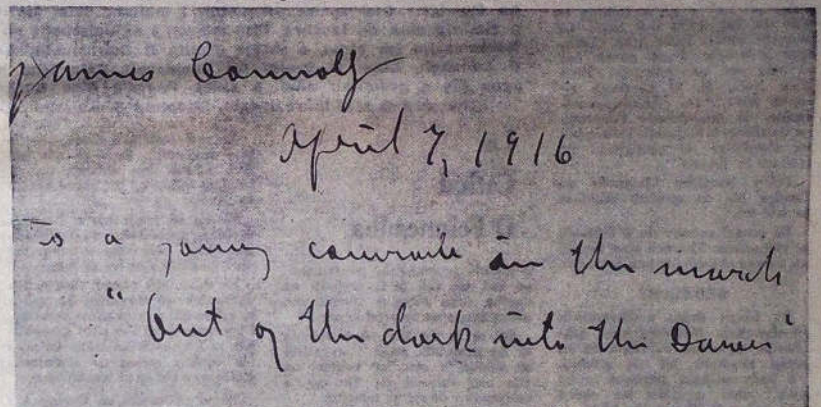 James Connolly
April 7, 1916
To a young comrade in the march
"Out of the dark into the Dawn"